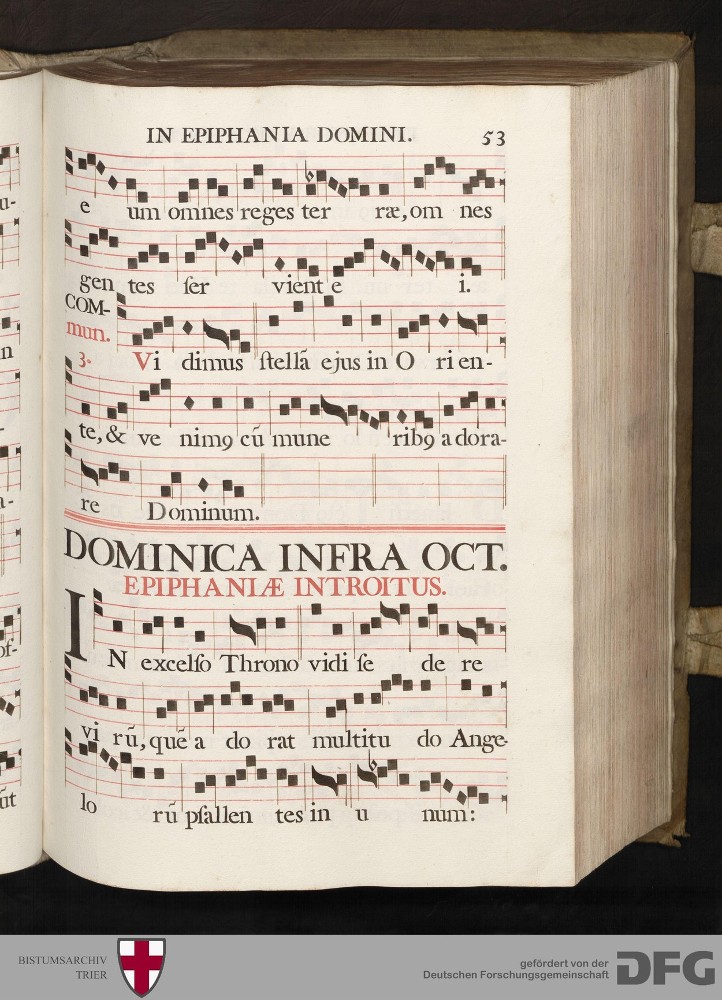 IN EPIPHANIA DOMINI. 53
e um omnes reges ter ræ, om nes
gen tes ſer vient e i.
COM-
mun.
3. Vi dimus ſtellã ejus in O ri en-
te, & ve nimꝯ cũ mune ribꝯ a dora-
re Dominum.
DOMINICA INFRA OCT.
EPIPHANIÆ INTROITUS.
IN excelſo Throno vidi ſe de re
vi rũ, quẽ a do rat multitu do Ange-
lo rũ pſallen tes in u num:
u-
n
a-
of-
ũt
BISTUMSARCHIV
TRIER
gefördert von der
Deutschen Forschungsgemeinschaft
DFG